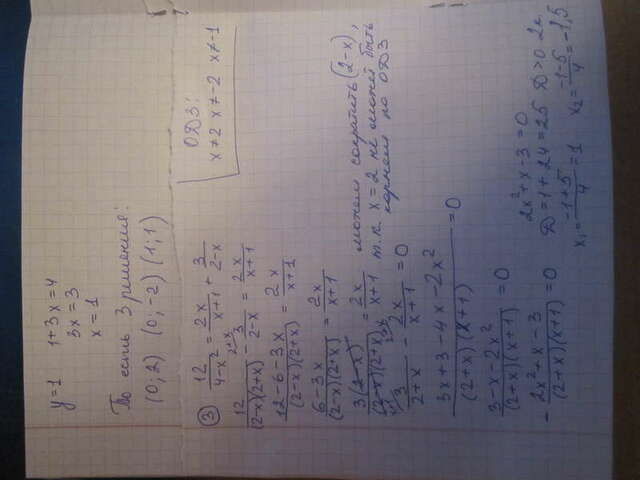 y=1 1+3x=4
3x=3
x=1
То есть 3 решения:
(0;2) (0;-2) (1;1)
③ 12/(4-x²) = 2x/(x+1) + 3/(2-x)
ОДЗ:
x≠2 x≠-2 x≠-1
12/((2-x)(2+x)) - 3/(2-x) (2+x = 2x/(x+1)
(12-6-3x)/((2-x)(2+x)) = 2x/(x+1)
(6-3x)/((2-x)(2+x)) = 2x/(x+1)
3(2-x)/((2-x)(2+x)) = 2x/(x+1) можем сократить (2-x),
т.к. x=2 не может быть
корнем по ОДЗ
x+1) 3/(2+x) - 2+x) 2x/(x+1) = 0
(3x+3-4x-2x²)/((2+x)(x+1)) = 0
(3-x-2x²)/((2+x)(x+1)) = 0
- (2x²+x-3)/((2+x)(x+1)) = 0
2x²+x-3=0
D=1+24=25 D>0 2к
x₁=(-1+5)/4=1 x₂=(-1-5)/4=-1,5